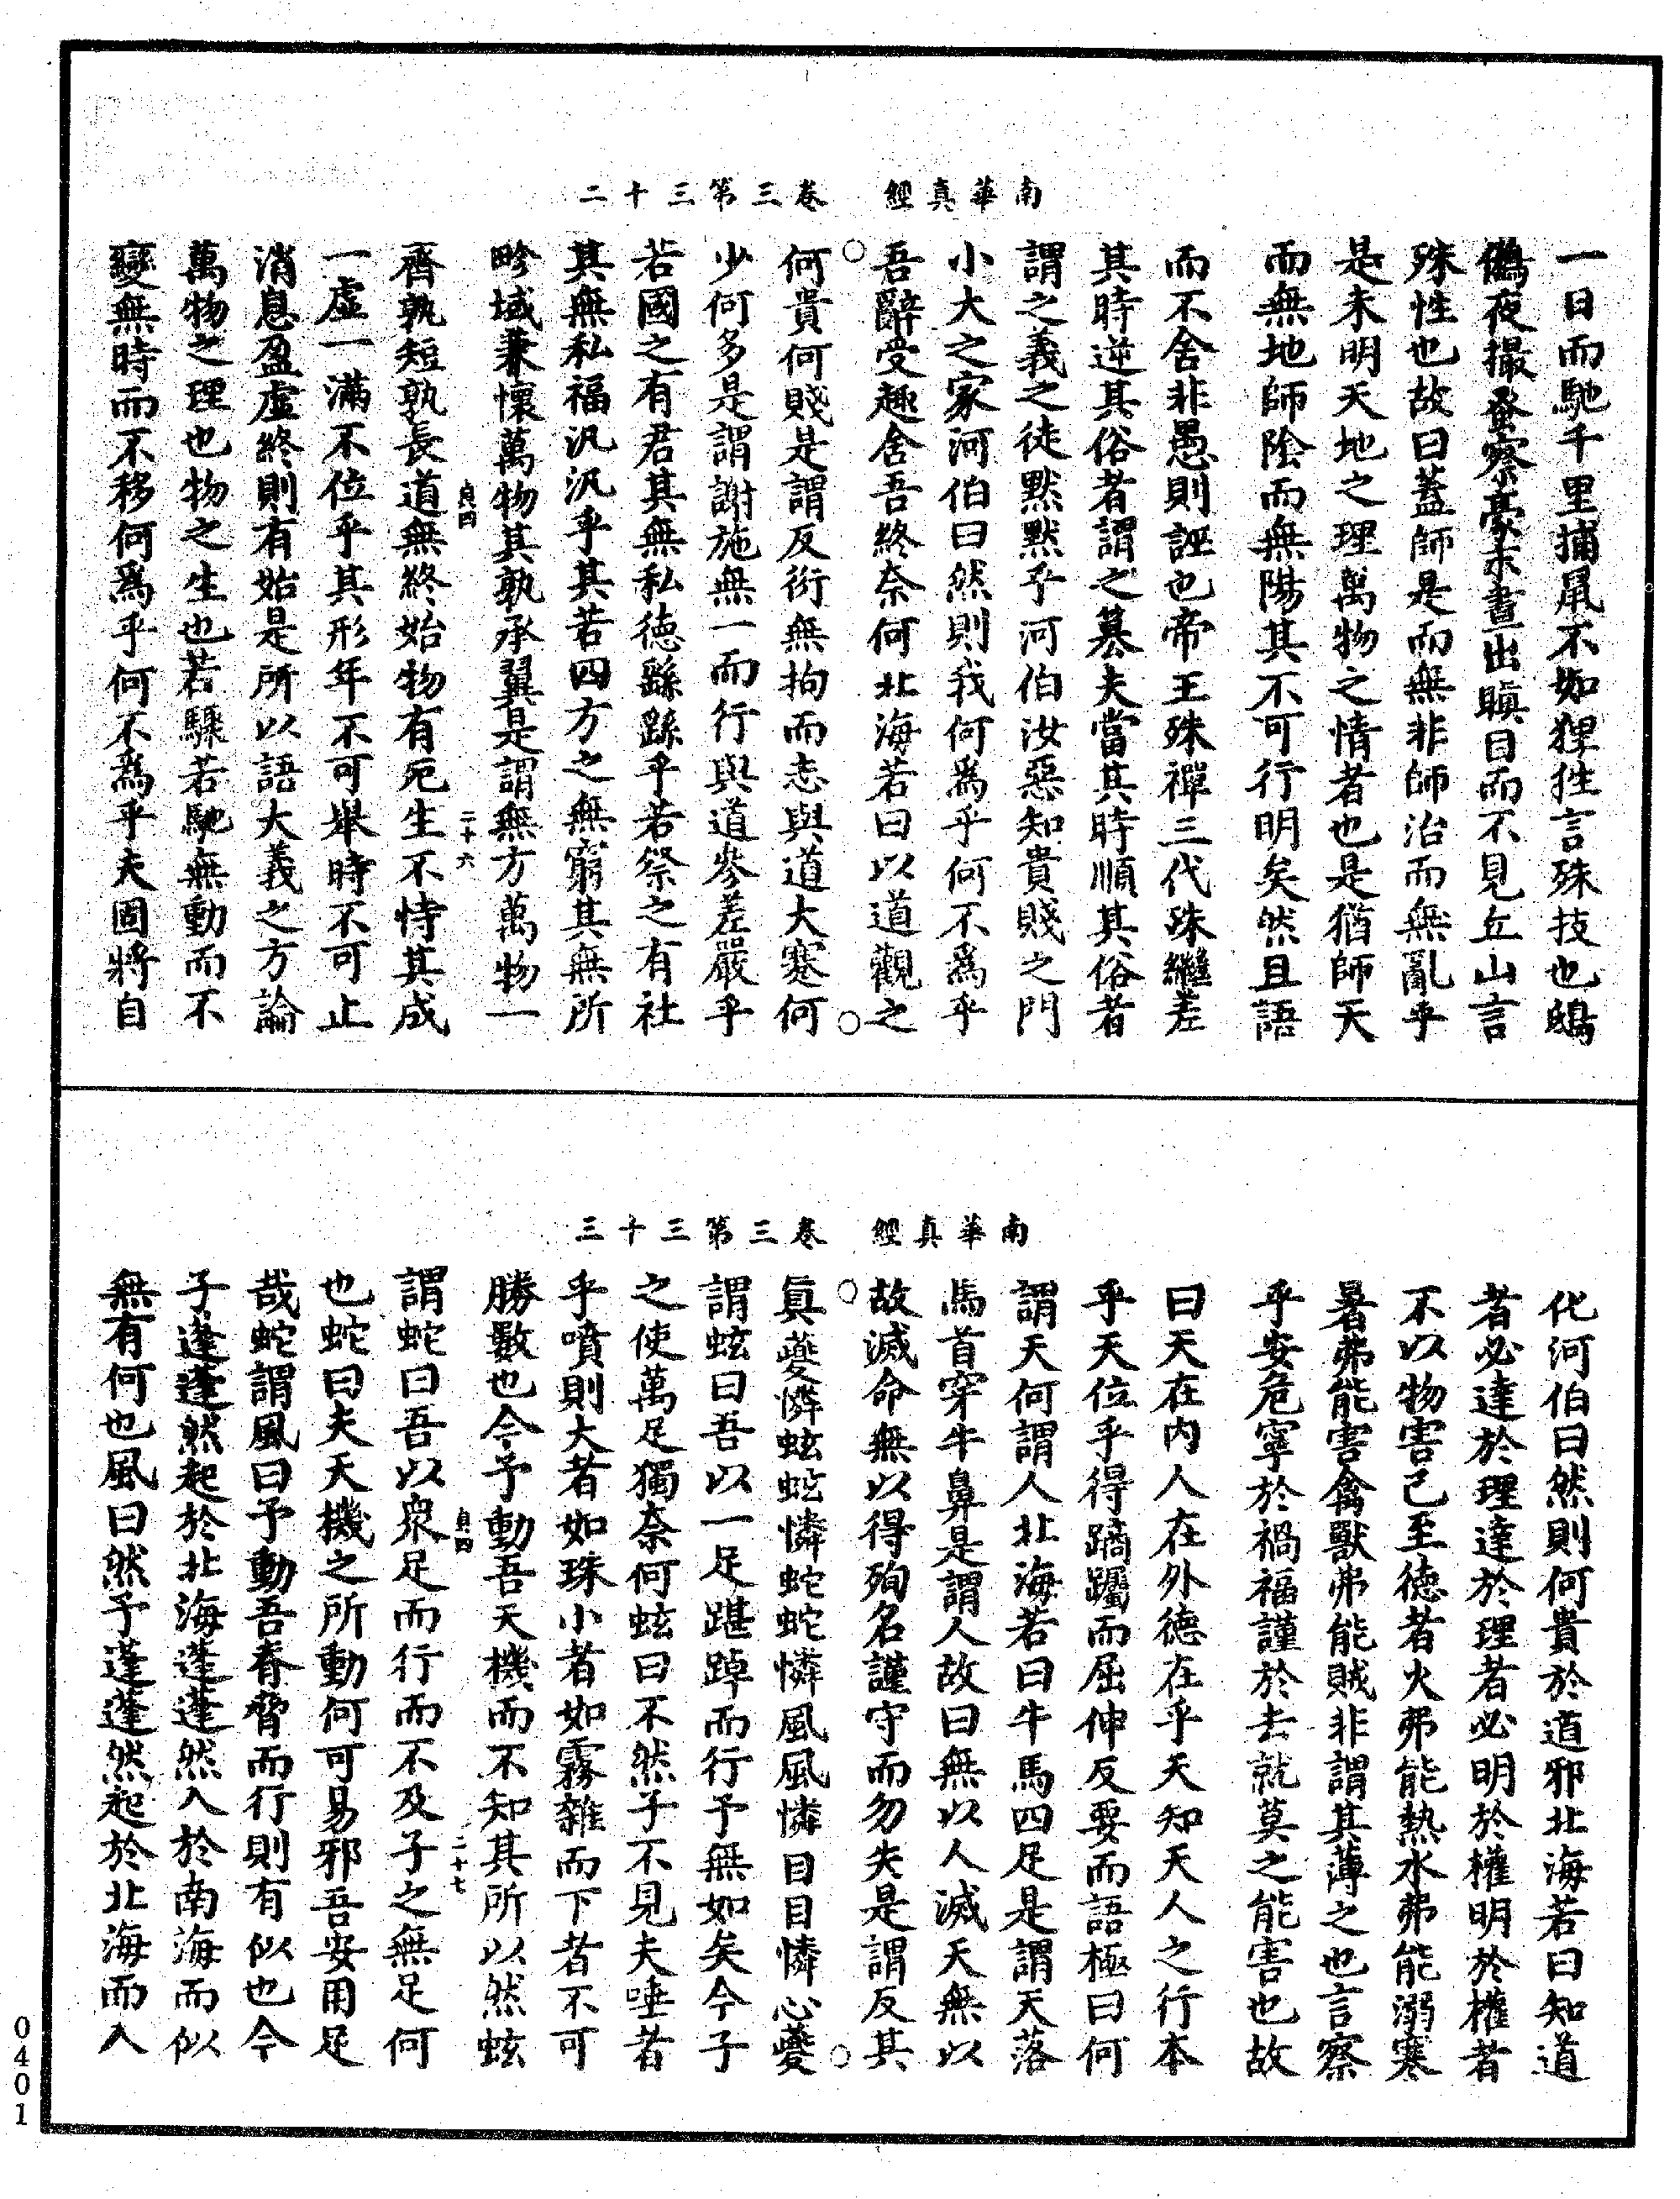 南華真經　卷三第三十二
一日而馳千里捕鼠不如狸狌言殊技也鴟
鵂夜撮蚤察豪末晝出瞋目而不見丘山言
殊性也故曰蓋師是而無非師治而無亂乎
是未明天地之理萬物之情者也是猶師天
而無地師陰而無陽其不可行明矣然且語
而不舍非愚則誣也帝王殊禪三代殊繼差
其時逆其俗者謂之篡夫當其時順其俗者
謂之義之徒默默乎河伯汝惡知貴賤之門
小大之家河伯曰然則我何為乎何不為乎
吾辭受趣舍吾終奈何北海若曰以道觀之
何貴何賤是謂反衍無拘而志與道大蹇何
少何多是謂謝施無一而行與道參差嚴乎
若國之有君其無私德繇繇乎若祭之有社
其無私福汎汎乎其若四方之無窮其無所
畛域兼懷萬物其孰承翼是謂無方萬物一
貞四　二十六
齊孰短孰長道無終始物有死生不恃其成
一虛一滿不位乎其形年不可舉時不可止
消息盈虛終則有始是所以語大義之方論
萬物之理也物之生也若驟若馳無動而不
變無時而不移何為乎何不為乎夫固將自
南華真經　卷三第三十三
化河伯曰然則何貴於道邪北海若曰知道
者必達於理達於理者必明於權明於權者
不以物害己至德者火弗能熱水弗能溺寒
暑弗能害禽獸弗能賊非謂其薄之也言察
乎安危寧於禍福謹於去就莫之能害也故
曰天在內人在外德在乎天知天人之行本
乎天位乎得蹢躅而屈伸反要而語極曰何
謂天何謂人北海若曰牛馬四足是謂天落
馬首穿牛鼻是謂人故曰無以人滅天無以
故滅命無以得殉名謹守而勿失是謂反其
真夔憐蚿蚿憐蛇蛇憐風風憐目目憐心夔
謂蚿曰吾以一足踸踔而行予無如矣今子
之使萬足獨奈何蚿曰不然子不見夫唾者
乎噴則大者如珠小者如霧雜而下者不可
勝數也今予動吾天機而不知其所以然蚿
貞四　二十七
謂蛇曰吾以眾足而行而不及子之無足何
也蛇曰夫天機之所動何可易邪吾安用足
哉蛇謂風曰予動吾脊脅而行則有似也今
子蓬蓬然起於北海蓬蓬然入於南海而似
無有何也風曰然予蓬蓬然起於北海而入
0401